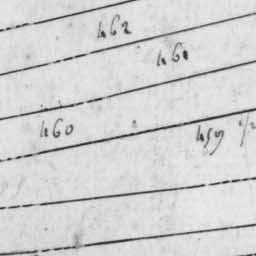 462
461
460
459 1/2